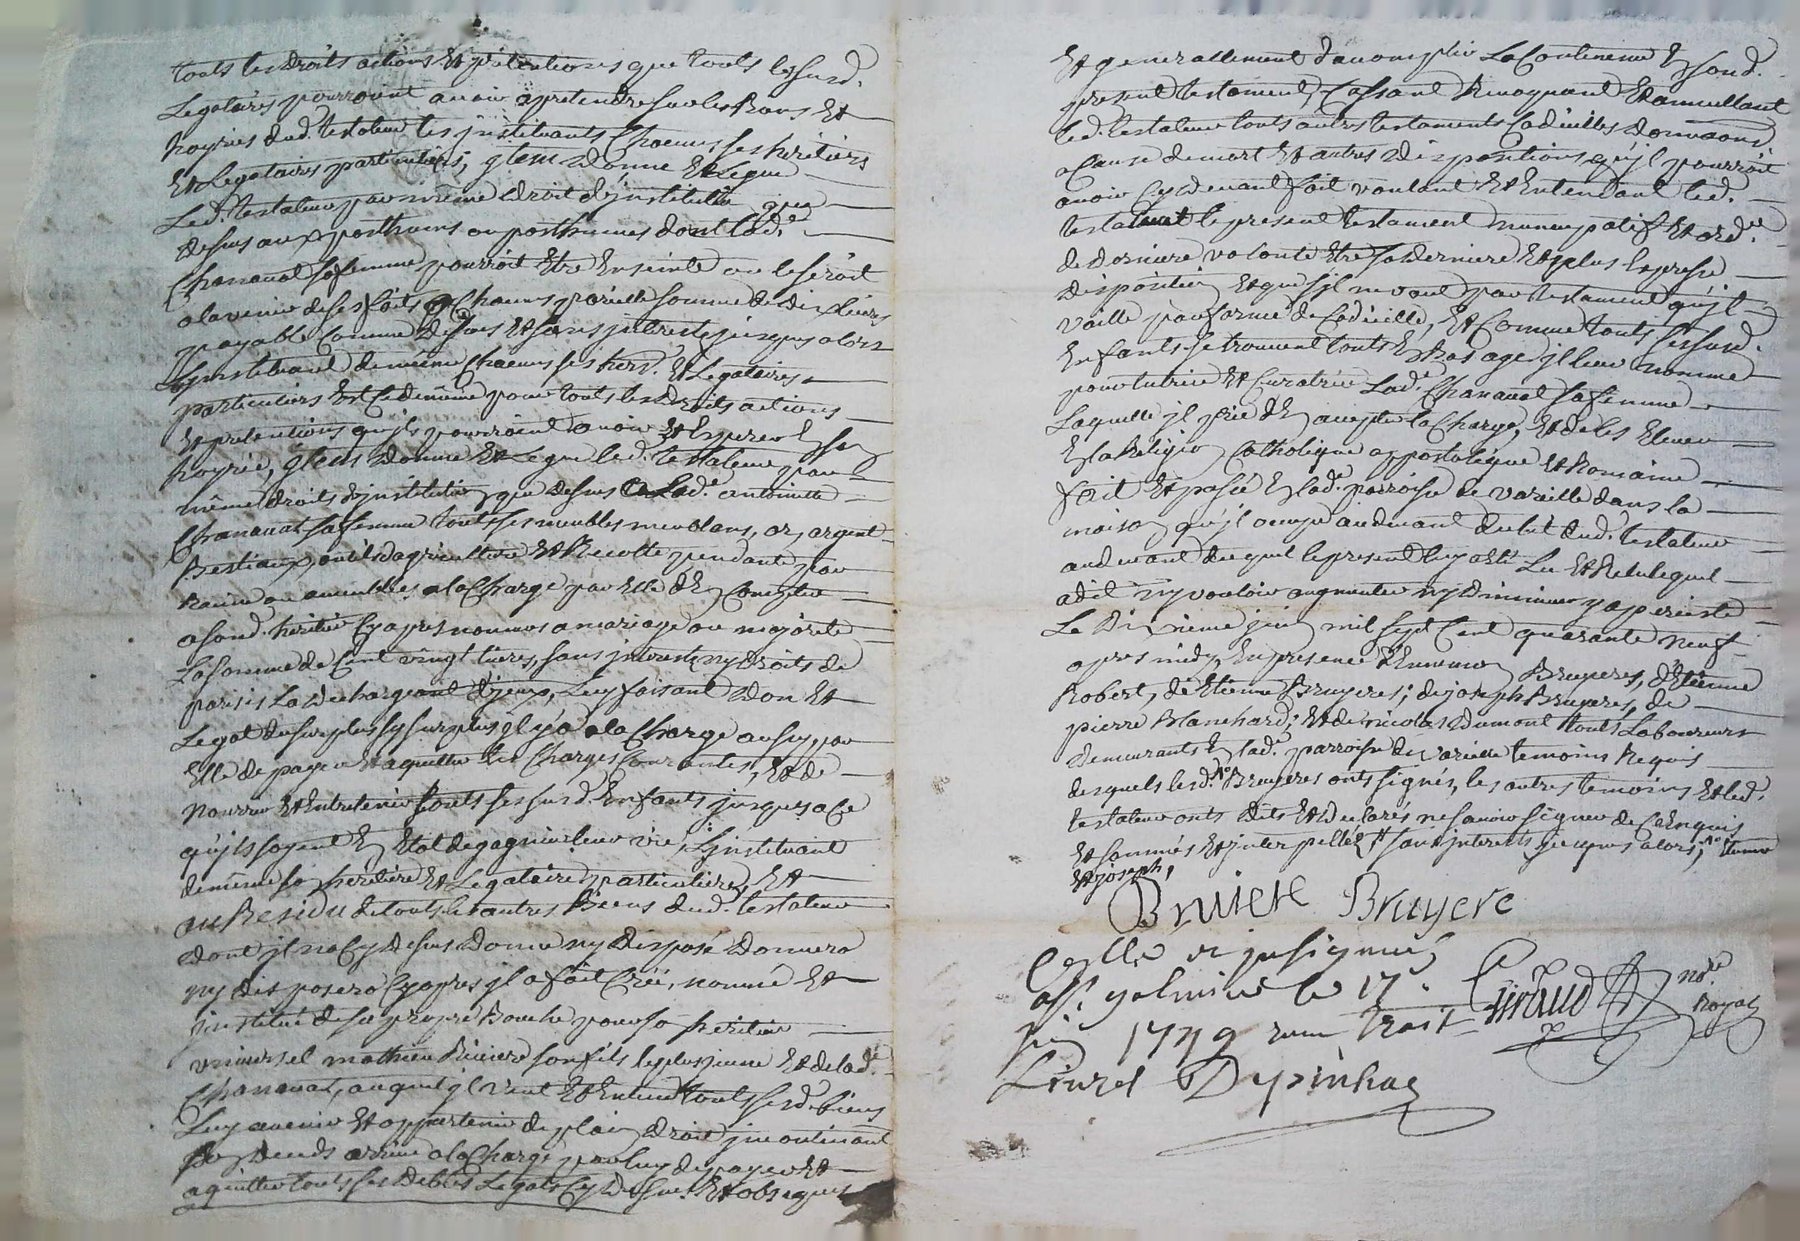 touts les droits actions Et prétentions que touts lessusd.
Legataires pourroient avoir a pretendre sur les Biens Et
hoyries dud. testateur les jnstituants Chacuns ses heritiers
Et Legataires particuliers, jtem donne Et Legue
Led. testateur par même droit d'jnstitution que
dessus aux posthumes ou posthumes dont lad.e
Chananat sa femme pourroit Etre Enseinte ou le seroit
a lavenir de ses faits a Chacuns pareille somme de dix livres
payable Comme dessus Et sans jnterets jusques alors
Les jnstituant de même Chacuns ses hers. Et Legataires
particuliers Et Ce de même pour touts les droits actions
Et pretentions qu'ils pourroient avoir Et Esperer En sa
hoyrie, jtem donne Et Legue led. testateur par
même droits d'jnstitution que dessus a Lad.e antoinette
Chananat sa femme tout ses meubles meublans, or, argent
Bestiaux, outils d'agriculture Et Recolte pendante par
Racine ou ameublies a la Charge par Elle d'En Compter
a sond. heritier Cy apres nommé a mariage ou majorité
La somme de Cent vingt livres, sans jnterests ny droits de
parisis La dechargeant d'jceux, Luy faisant don Et
Legat du surplus sy surplus jl y a a la Charge aussy par
Elle de payer Et aquitter les Charges Courantes, Et de
nourrir Et Entretenir touts ses susd. Enfants jusques a Ce
qu'ils soyent En Etat de gagner leur vie, L'jnstituant
de même son heritiere Et Legataire particuliere, Et
au Residu de touts les autres Biens dud. testateur
dont jl na Cy dessus donné ny disposé donnera
ny disposera Cy apres jl a fait Créé, nommé Et
jnstitué de sa propre Bouche pour son heritier
universel mathieu Riviere son fils le plus jeune Et de lad.e
Chananat, auquel jl veut Et Entend touts sesd. biens
Luy avenir Et appartenir de plain droit jncontinant
son deceds arrivé a la Charge par luy de payer Et
aquitter touts ses debtes Legats Cy dessus Et obseques
Et generallement d'accomplir Le Contenu En sond.
present testament, Cassant Revoquant Et annullant
led. testateur touts autres testaments Codicilles donnations
a Cause de mort Et autres dispositions qu'jl pourroit
avoir Cy devant fait voulant Et Entendant led.
testateur le present testament nuncupatif Et ord.e
de derniere volonté Etre sa derniere Et plus Expresse
disposition Et que s'jl ne vaut par testament qu'jl
vaille par forme de Codicille, Et Comme touts sessusd.
Enfants se trouvent touts En Bas age jl leur nomme
pour tutrice Et Curatrice Lad.e Chananat sa femme
Laquelle jl prie d'En accepter la Charge, Et de les Elever
En la Religion Catholique appostolique Et Romaine
fait Et passé En lad. parroisse de vareille dans la
maison qu'jl occupe au devant du lit dud. testateur
au devant duquel le present luy a Eté Lu Et Relu lequel
a dit n'y vouloir augmenter ny diminuer y a persisté
Le Dixieme juin mil sept Cent quarante neuf
apres midy, En presence d'Ennemond Bruyeres, d'Etienne
Robert, de Etienne Bruyeres; de joseph Bruyeres, de
pierre Blanchard; Et de nicolas Dumont touts Laboureurs
demeurants En lad.e parroisse de vareille temoins Requis
desquels lesd. Bruyeres ont signés, les autres temoins Et led.
testateur onts dits Et declarés ne savoir signer de Ce Enquis
Et sommés Et jnterpellés # sans jnterests jusques alors,
Et joseph,
Bruiere Bruyere
Colle et jnsignué
a St. galmier le 17e
juin 1749 recu trois
Livres Depinhac
Giraud no.re
Royal